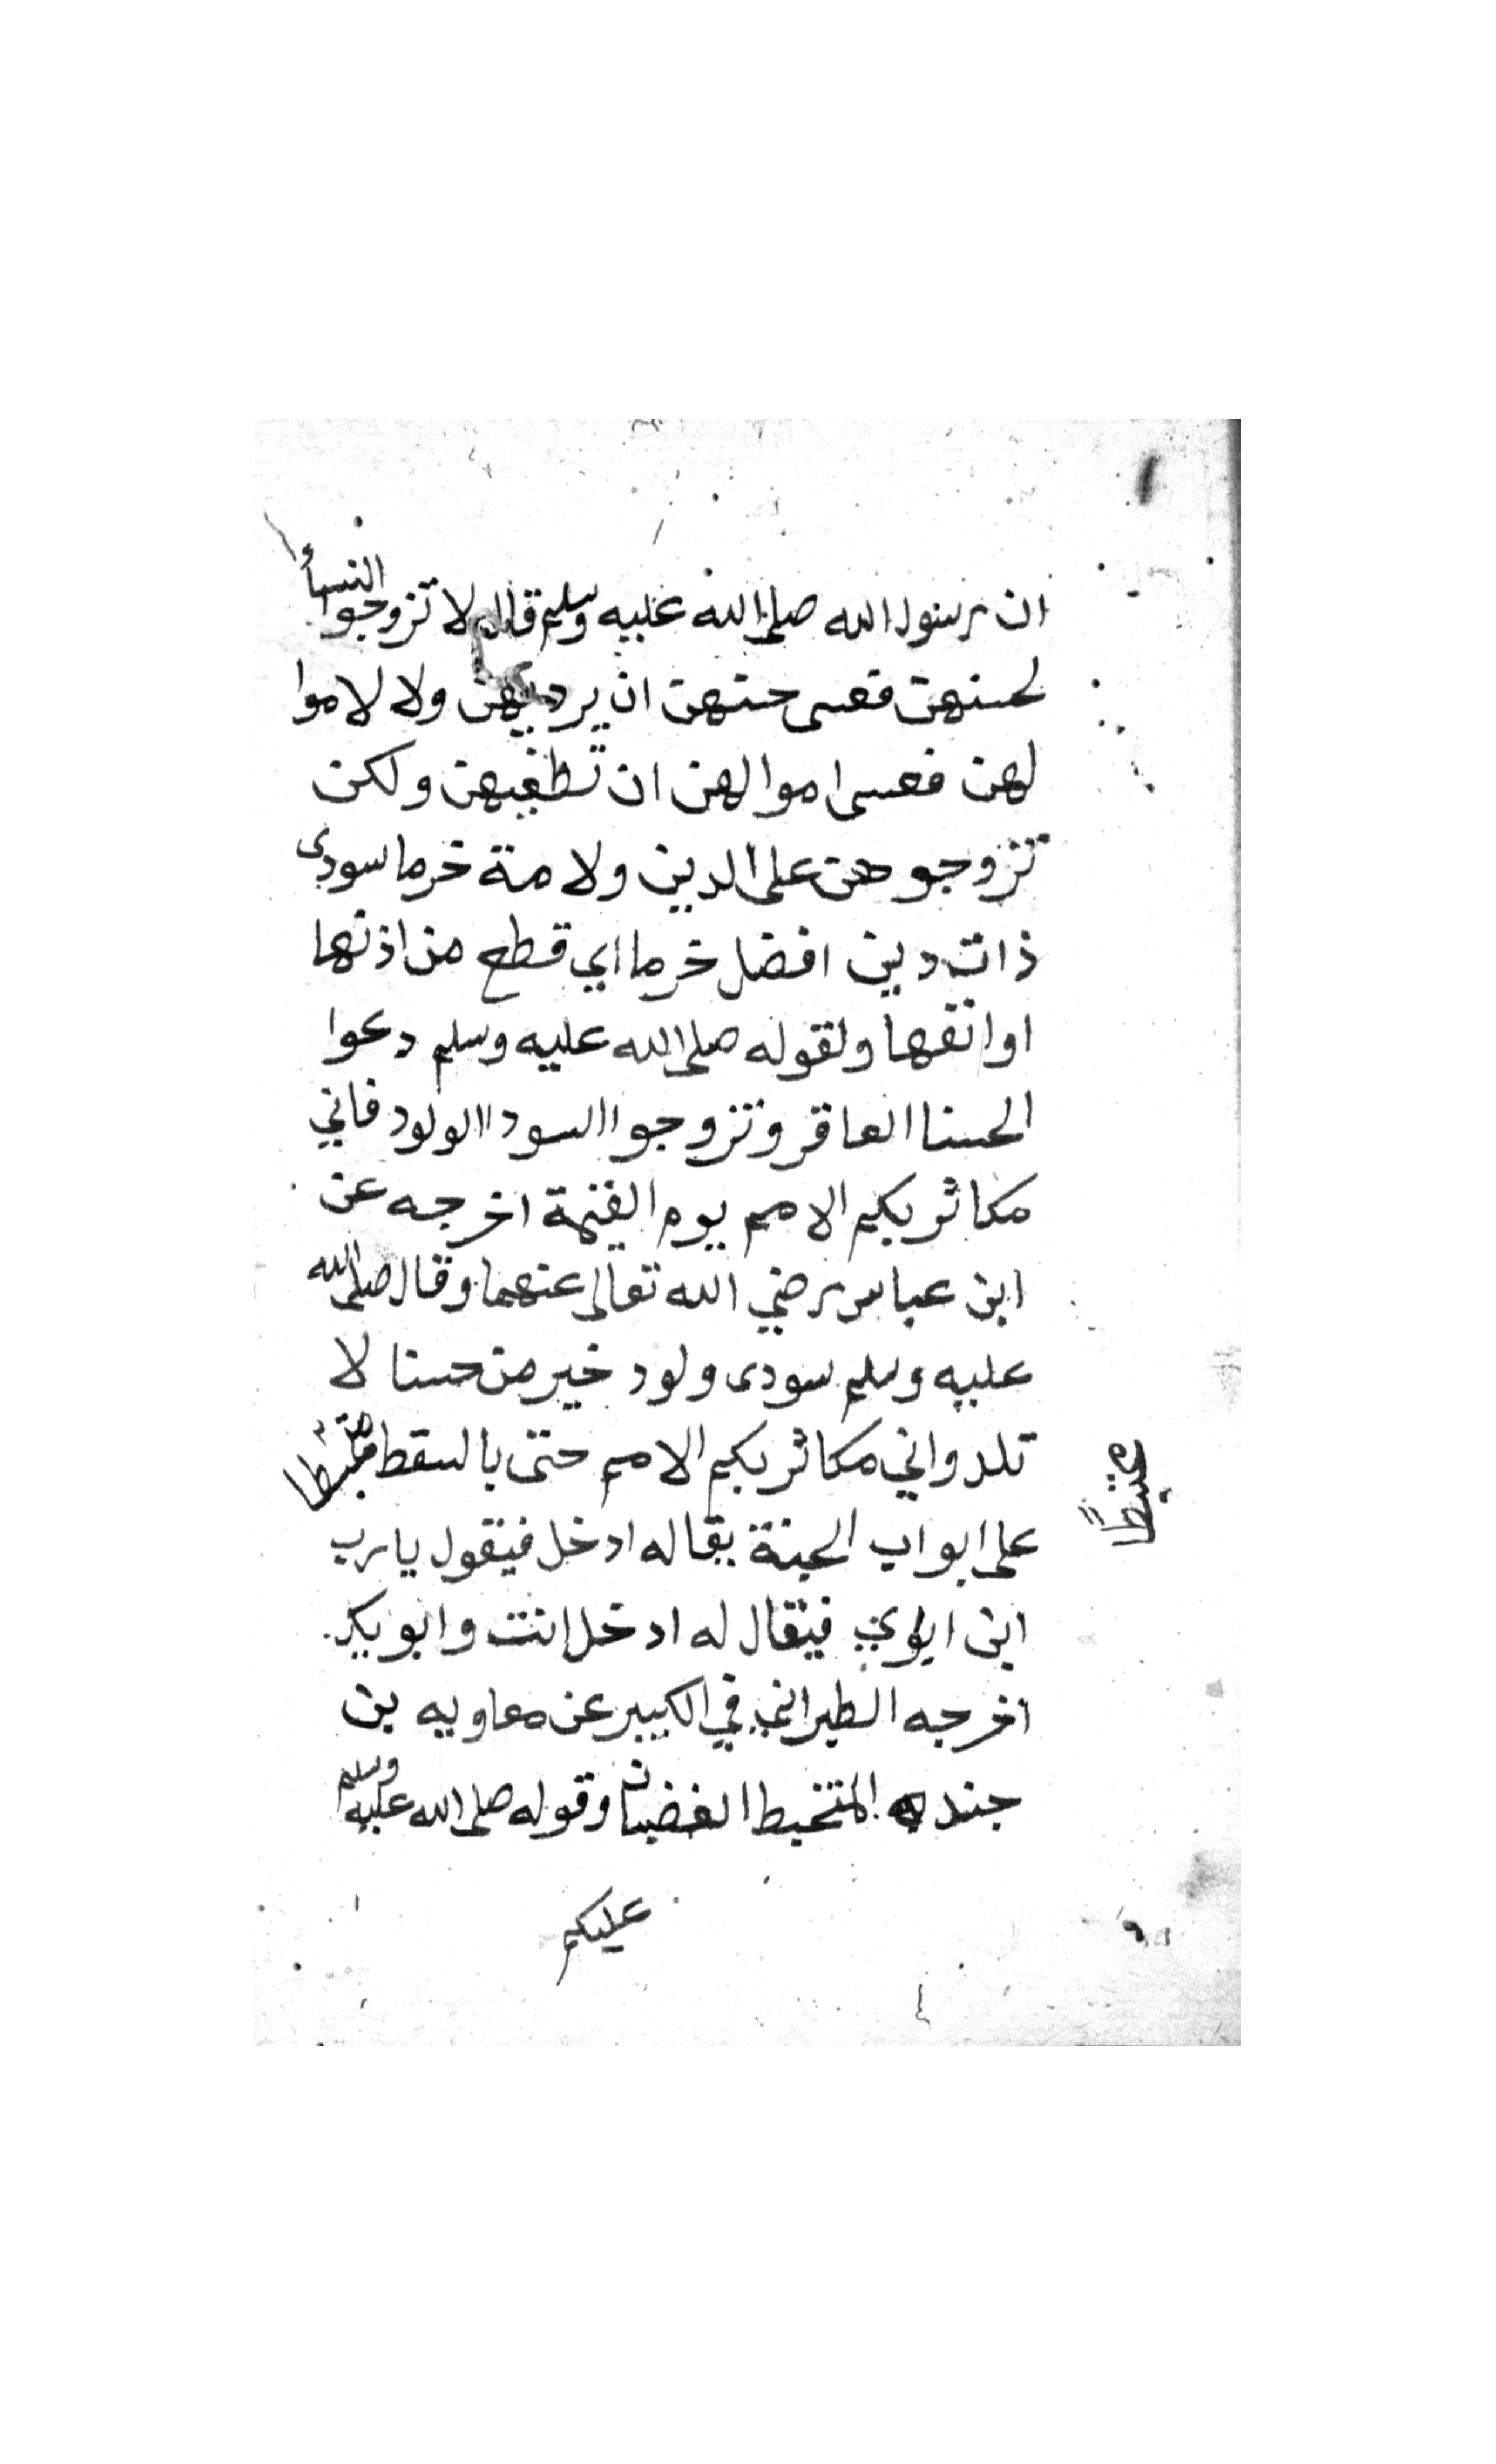 ان رسول الله صلى الله عليه وسلم قال لا تزوجوا النسأ
لحسنهن فعسى حسنهن ان يرديهن ولا لاموا
لهن فعسى اموالهن ان تطغيهن ولكن
تزوجوهن على الدين ولامة خرما سودى
ذات دين افضل خرما اي قطع من اذنها
او انفها ولقوله صلى الله عليه وسلم دعوا
الحسنا العاقر وتزوجوا السودا الولود فاني
مكاثر بكم الامم يوم القيمة اخرجه عن
ابن عباس رضي الله تعالى عنهما وقال صلى الله
عليه وسلم سودى ولود خير من حسنا لا
تلد واني مكاثر بكم الامم حتى بالسقط
على ابواب الجنة يقاله ادخل فيقول يارب
اين ابوي فيقال له ادخل انت وابويك
اخرجه الطبراني في الكبير عن معاويه بن
جنده المتخبط الغضبان وقوله صلى الله عليه وسلم
عليكم